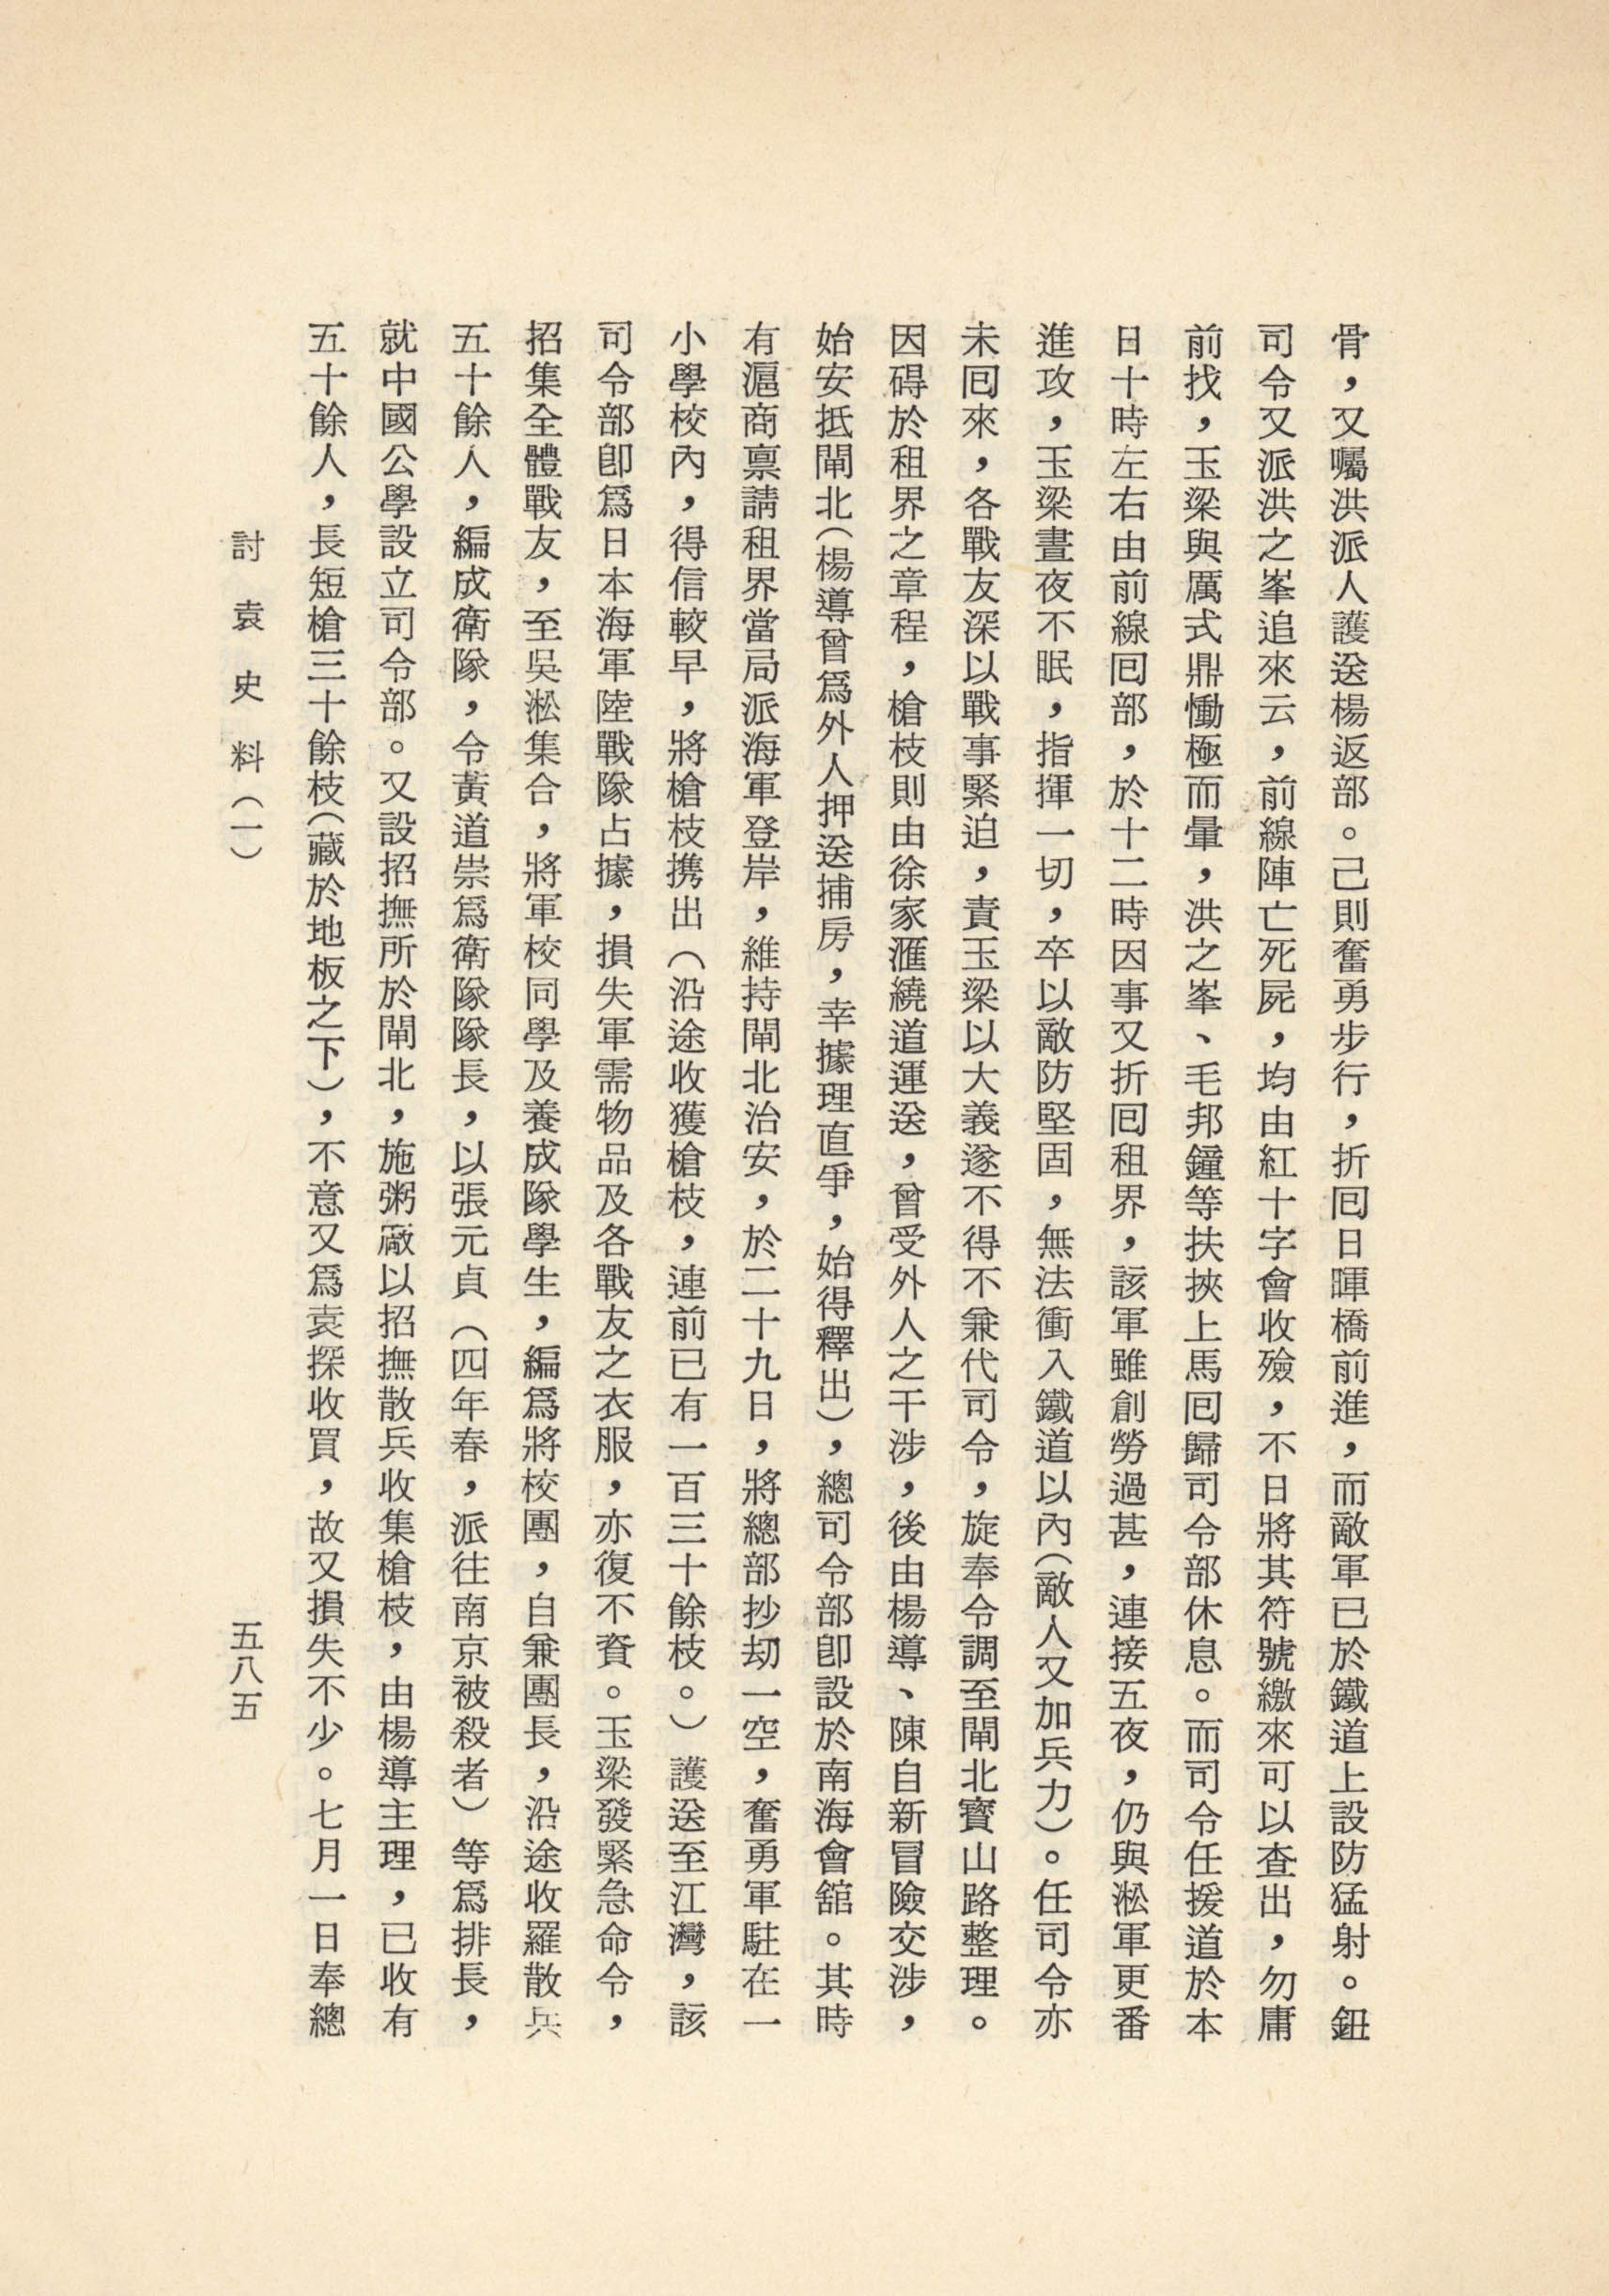 骨，又囑洪派人護送楊返部。己則奮勇步行，折囘日暉橋前進，而敵軍已於鐵道上設防猛射。鈕
司令又派洪之峯追來云，前線陣亡死屍，均由紅十字會收殮，不日將其符號繳來可以查出，勿庸
前找，玉梁與厲式鼎慟極而暈，洪之峯、毛邦鐘等扶挾上馬囘歸司令部休息。而司令任援道於本
日十時左右由前線囘部，於十二時因事又折囘租界，該軍雖創勞過甚，連接五夜，仍與淞軍更番
進攻，玉梁晝夜不眠，指揮一切，卒以敵防堅固，無法衝入鐵道以內（敵人又加兵力）。任司令亦
未囘來，各戰友深以戰事緊迫，責玉梁以大義遂不得不兼代司令，旋奉令調至閘北寶山路整理。
因碍於租界之章程，槍枝則由徐家滙繞道運送，曾受外人之干涉，後由楊導、陳自新冒險交涉，
始安抵閘北（楊導曾爲外人押送捕房，幸據理直爭，始得釋出），總司令部卽設於南海會舘。其時
有滬商禀請租界當局派海軍登岸，維持閘北治安，於二十九日，將總部抄刼一空，奮勇軍駐在一
小學校內，得信較早，將槍枝携出（沿途收獲槍枝，連前已有一百三十餘枝。）護送至江灣，該
司令部卽爲日本海軍陸戰隊占據，損失軍需物品及各戰友之衣服，亦復不貲。玉梁發緊急命令，
招集全體戰友，至吳淞集合，將軍校同學及養成隊學生，編爲將校團，自兼團長，沿途收羅散兵
五十餘人，編成衛隊，令黃道崇爲衛隊隊長，以張元貞（四年春，派往南京被殺者）等爲排長，
就中國公學設立司令部。又設招撫所於閘北，施粥廠以招撫散兵收集槍枝，由楊導主理，已收有
五十餘人，長短槍三十餘枝（藏於地板之下），不意又爲袁探收買，故又損失不少。七月一日奉總
討袁史料（一）
五八五